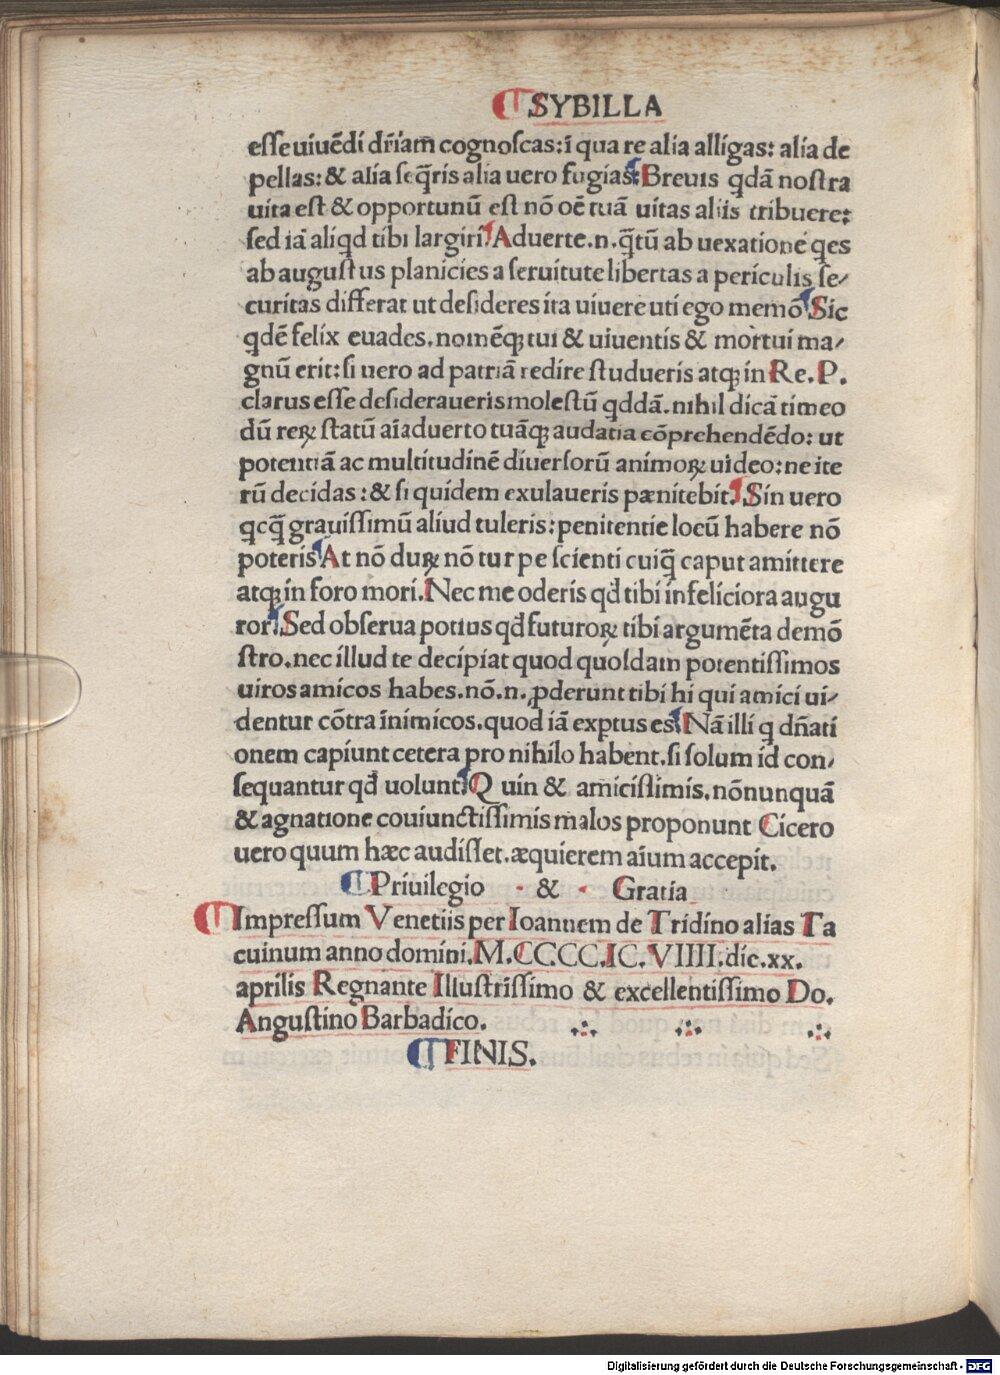 SYBILLA
eſſe uiuēdi dr̄iam̄ cognoſcas:ī qua re alia alligas: alia de
pellas:& alia ſeq̄ris alia uero fugias: Breuis qdā noſtra
uita eſt & opportunū eſt nō oē tuā uitas aliis tribuere:
ſed iā aliqd tibi largiri. Aduerte.n.q̄tū ab uexatione qes
ab auguſtus planicies a ſeruitute libertas a periculis ſe/
curitas differat ut deſideres ita uiuere uti ego memō. Sic
qdē felix euades.nomēqꝫ tui & uiuentis & mortui ma/
gnū erit:ſi uero ad patriā redire ſtudueris atqꝫ in Re.P.
clarus eſſe deſideraueris moleſtū qddā.nihil dicā timeo
dū reꝝ ſtatū aīaduerto tuāqꝫ audatia cōprehendēdo: ut
potentiā ac multitudinē diuerſorū animoꝝ uideo:ne ite
rū decidas:& ſi quidem exulaueris pænitebit. Sin uero
qcq̄ grauiſſimū aliud tuleris:penitentie locū habere nō
poteris. At nō duꝝ nō turpe ſcienti cuiq̄ caput amittere
atqꝫ in foro mori.Nec me oderis qđ tibi infeliciora augu
ror. Sed obſerua potius qđ futuroꝝ tibi argumēta demō
ſtro.nec illud te decipiat quod quoſdam potentiſſimos
uiros amicos habes.nō.n.ꝓderunt tibi hi qui amici ui/
dentur cōtra inimicos.quod iā exptus es. Nā illi q dn̄ati
onem capiunt cetera pro nihilo habent.ſi ſolum id con/
ſequantur qđ uolunt. Quin & amiciſſimis.nōnunquā
& agnatione couiunctiſſimis malos proponunt Cicero
uero quum hæc audiſſet.æquierem aīum accepit.
Priuilegio · & · Gratia
Impreſſum Venetiis per Ioannem de Tridino alias Ta
cuinum anno domini.M.CCCC.IC.VIIII.die.xx.
aprilis Regnante Illuſtriſſimo & excellentiſſimo Do.
Anguſtino Barbadico.
FINIS.
Digitalisierung gefördert durch die Deutsche Forschungsgemeinschaft - DFG